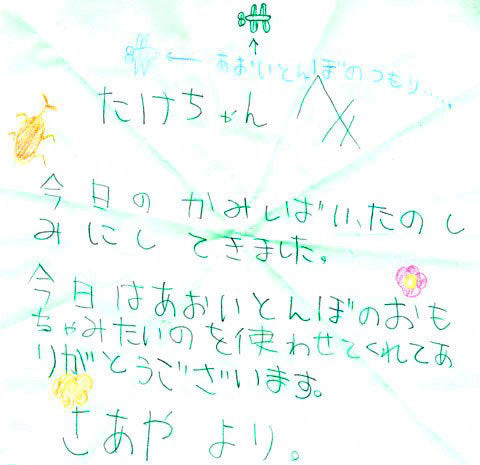 ←あおいとんぼのつもり.....
たけちゃんへ
今日のかみしばい、たのし
みにしてきました。
今日はあおいとんぼのおも
ちゃみたいのを使わせてくれてあ
りがとうございます。
さあやより。